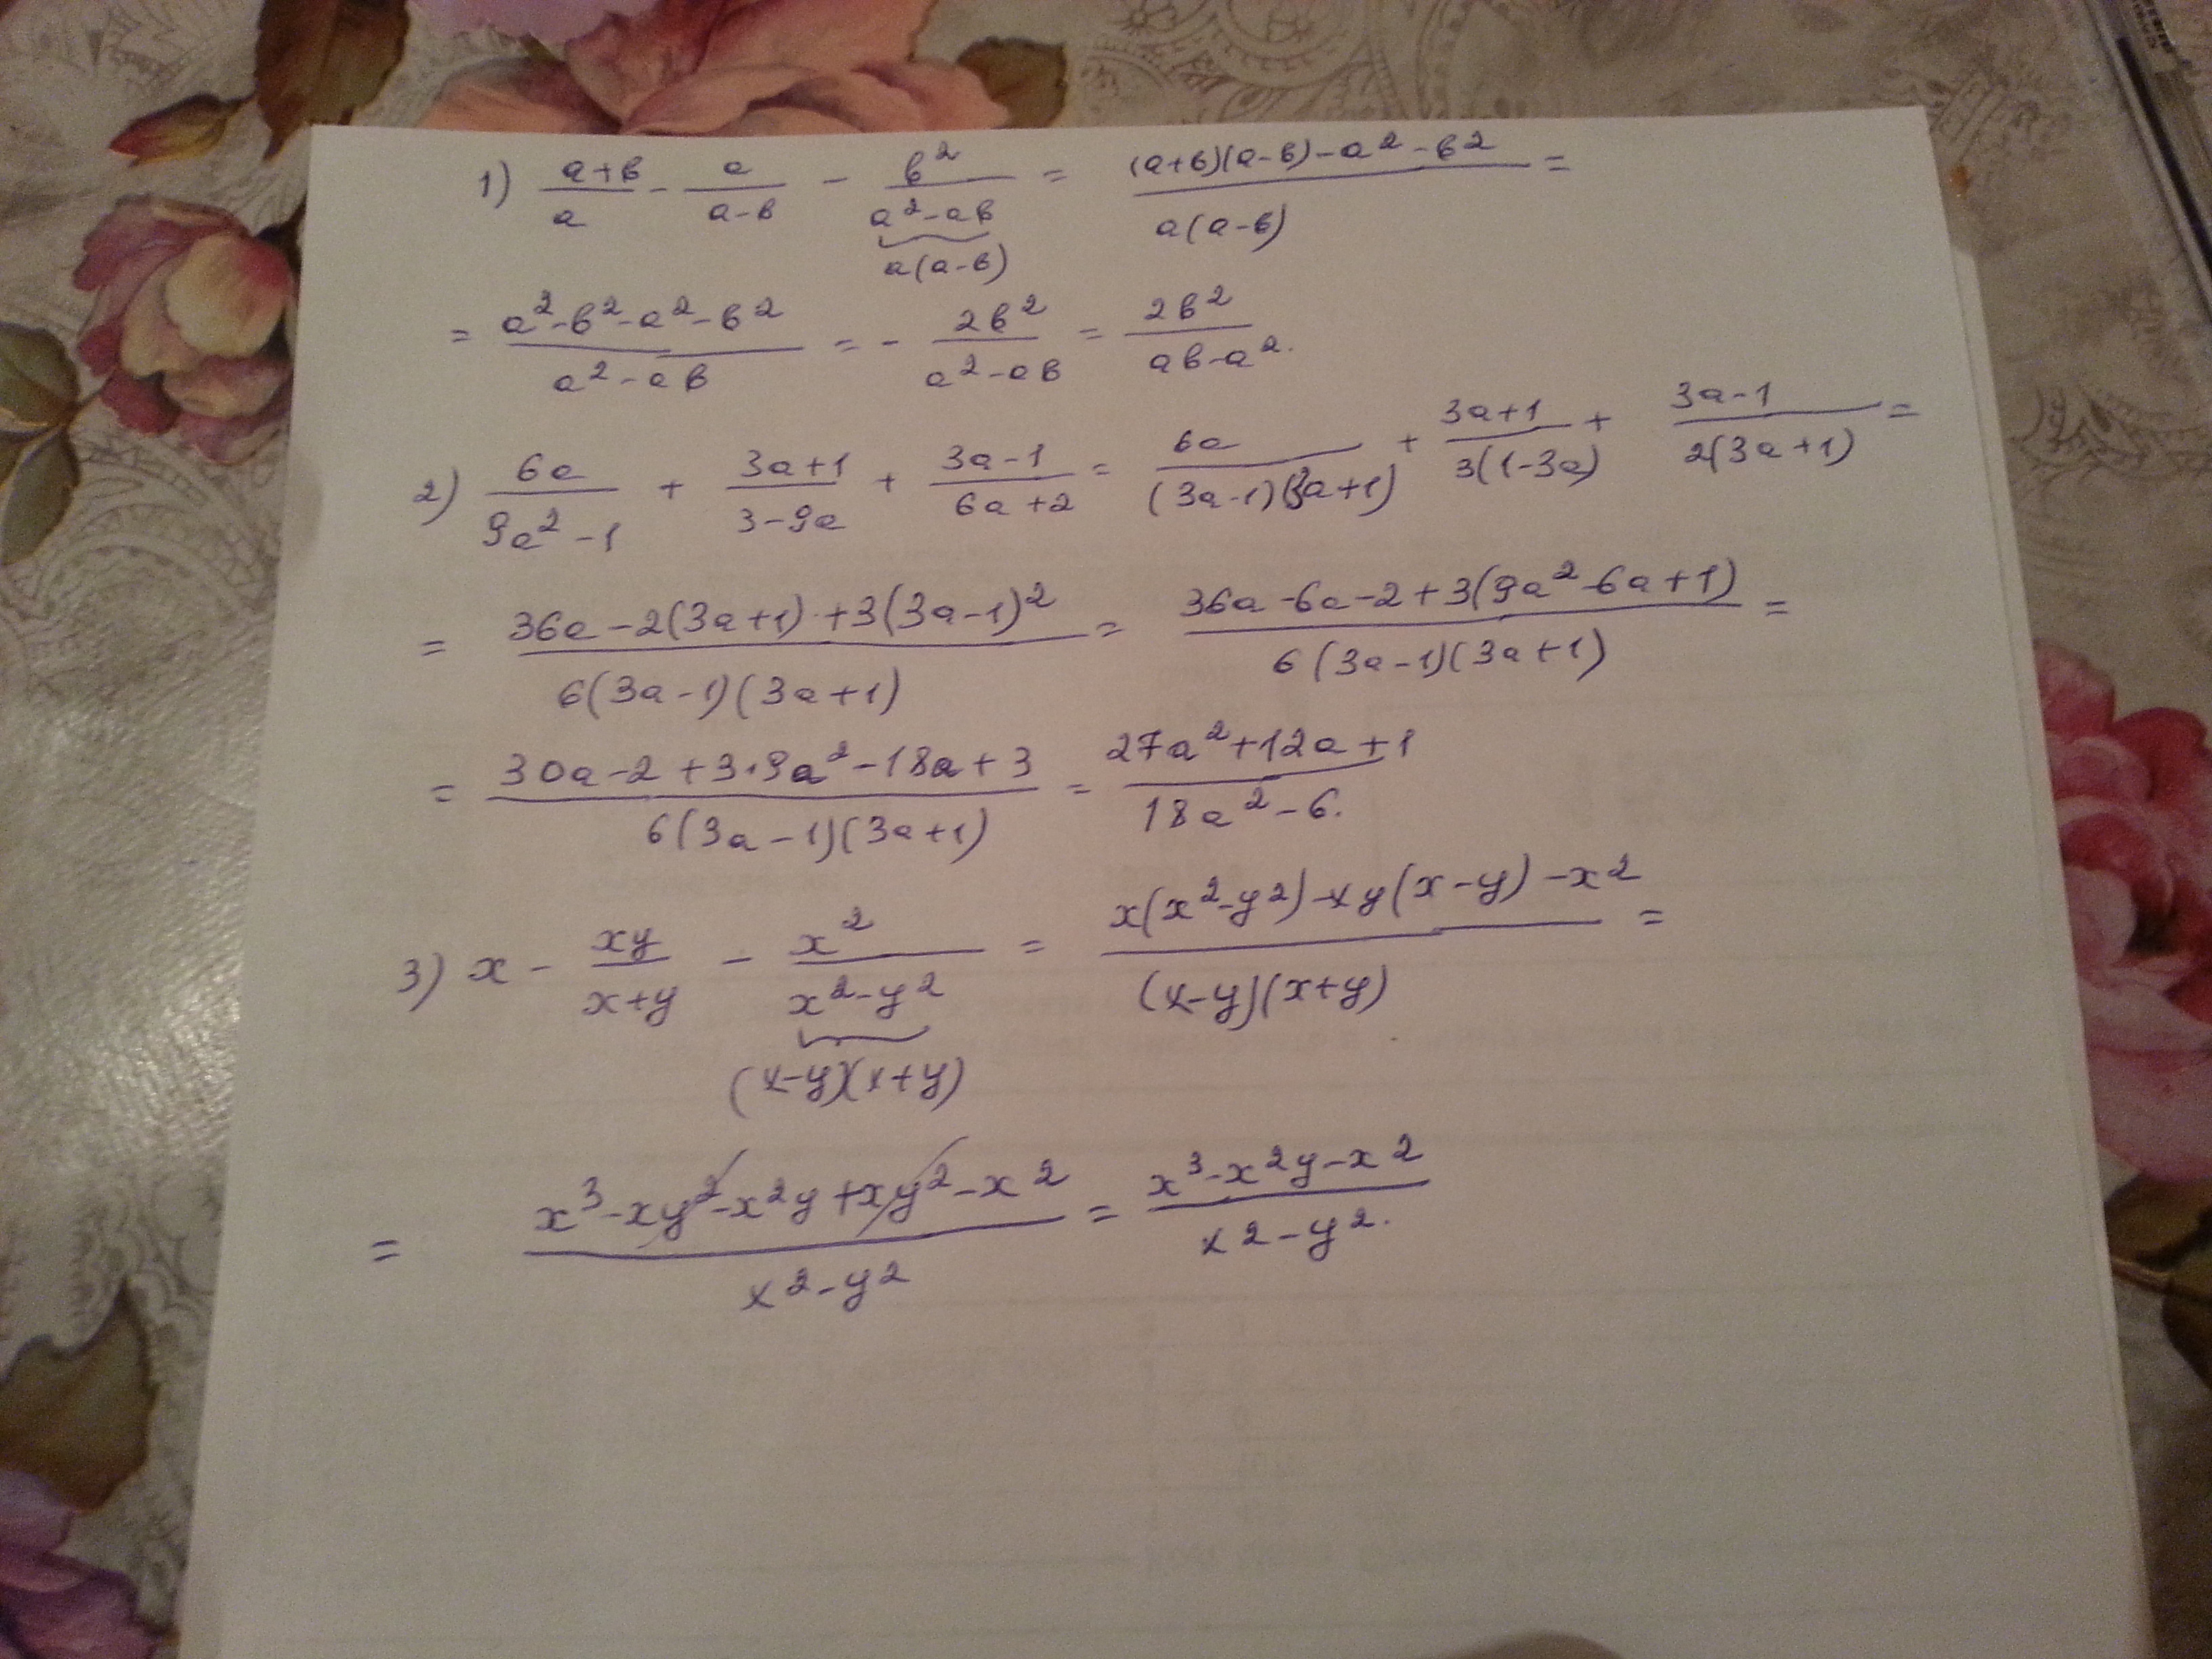 1) (a+b)/a - a/(a-b) - b²/(a²-ab) = ((a+b)(a-b)-a²-b²)/(a(a-b)) =
a(a-b)
= (a²-b²-a²-b²)/(a²-ab) = - 2b²/(a²-ab) = 2b²/(ab-a²).
2) 6a/(9a²-1) + (3a+1)/(3-9a) + (3a-1)/(6a+2) = 6a/((3a-1)(3a+1)) + (3a+1)/(3(1-3a)) + (3a-1)/(2(3a+1)) =
= (36a-2(3a+1)+3(3a-1)²)/(6(3a-1)(3a+1)) = (36a-6a-2+3(9a²-6a+1))/(6(3a-1)(3a+1)) =
= (30a-2+3·9a²-18a+3)/(6(3a-1)(3a+1)) = (27a²+12a+1)/(18a²-6).
3) x - xy/(x+y) - x²/(x²-y²) = (x(x²-y²)-xy(x-y)-x²)/((x-y)(x+y)) =
(x-y)(x+y)
= (x³-xy²-x²y+xy²-x²)/(x²-y²) = (x³-x²y-x²)/(x²-y²).